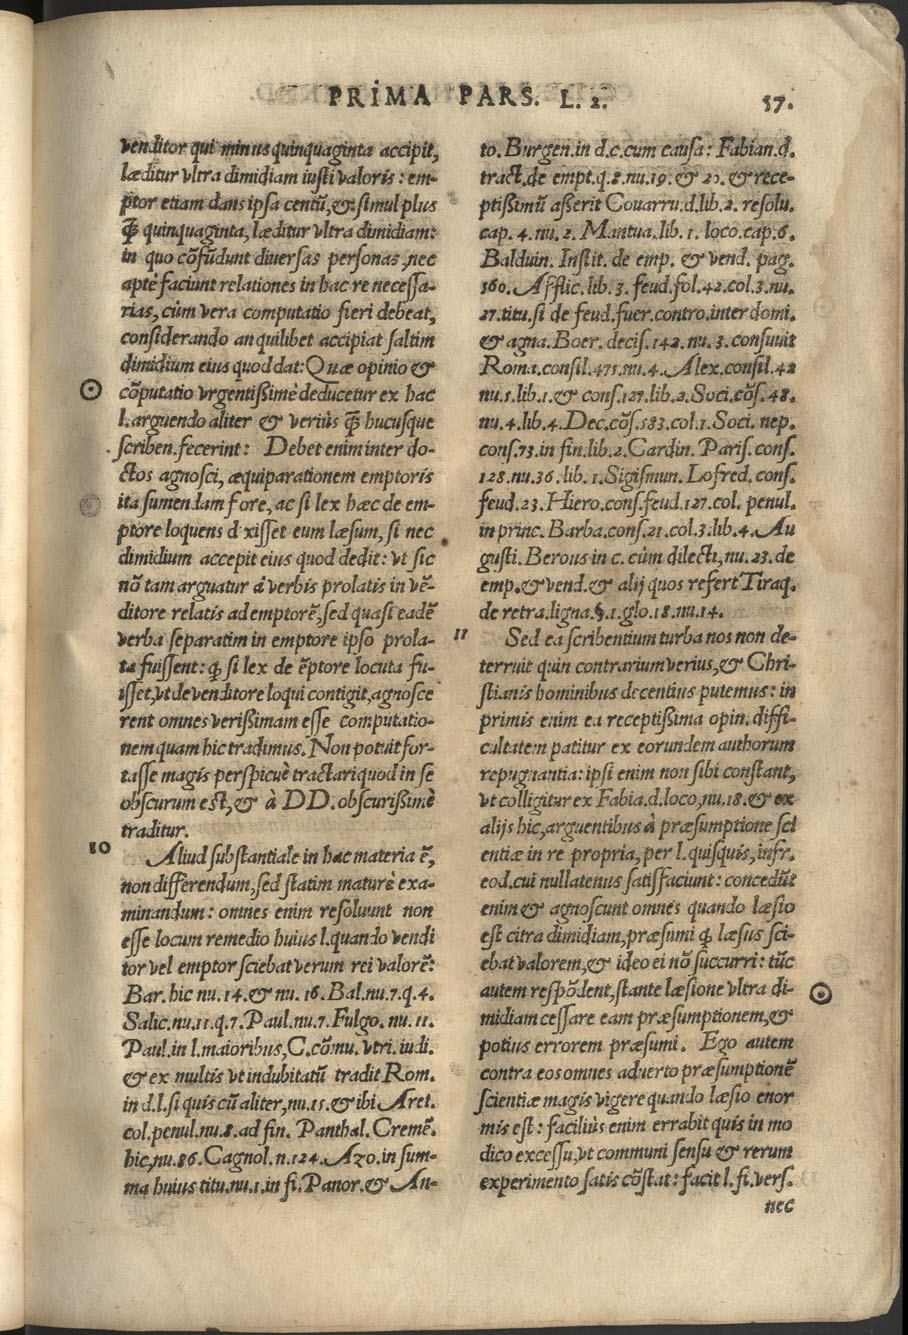 PRIMA PARS. L. 2.
57.
venditor qui minus quinquaginta accipit,
læditur vltra dimidiam iusti valoris: em-
ptor etiam dans ipsa centū, & simul plus
ꝗ̃ quinquaginta, læditur vltra dimidiam:
in quo cōfūdunt diuersas personas, nec
aptè faciunt relationes in hac re necessa-
rias, cùm vera computatio fieri debeat,
considerando an quilibet accipiat saltim
dimidium eius quod dat: Quæ opinio &
cōputatio vrgentissimè deducetur ex hac
l. arguendo aliter & veriùs ꝗ̃ hucusque
scriben. fecerint: Debet enim inter do-
ctos agnosci, æquiparationem emptoris
ita sumendam fore, ac si lex hæc de em-
ptore loquens dixisset eum læsum, si nec
dimidium accepit eius quod dedit: vt sic
nō tam arguatur á verbis prolatis in vē-
ditore relatis ad emptorē, sed quasi eadē
verba separatim in emptore ipso prola-
ta fuissent: ꝙ si lex de ēptore locuta fu-
isset, vt de venditore loqui contigit, agnosce
rent omnes verissimam esse computatio-
nem quam hic tradimus. Non potuit for-
tasse magis perspicuè tractari quod in se
obscurum est, & à DD. obscurissimè
traditur.
10
Aliud substantiale in hac materia ē,
non differendum, sed statim maturè exa-
minandum: omnes enim resoluunt non
esse locum remedio huius l. quando vendi
tor vel emptor sciebat verum rei valorē:
Bar. hic nu. 14. & nu. 16. Bal. nu. 7. q. 4.
Salic. nu. 11. q. 7. Paul. nu. 7. Fulgo. nu. 11.
Paul. in l. maioribus, C. cōmu. vtri. iudi.
& ex multis vt indubitatū tradit Rom.
in d. l. si quis cū aliter, nu. 15. & ibi Aret.
col. penul. nu. 8. ad fin. Panthal. Cremē.
hic, nu. 86. Cagnol. n. 124. Azo. in sum-
ma huius titu. nu. 1. in fi. Panor. & An-
to. Burgen. in d. c. cum causa: Fabian. d.
tract. de empt. q. 2. nu. 19. & 20. & rece-
ptissimū asserit Couarru. d. lib. 2. resolu.
cap. 4. nu. 2. Mantua. lib. 1. loco. cap. 6.
Balduin. Instit. de emp. & vend. pag.
360. Afflic. lib. 3. feud. fol. 42. col. 3. nu.
27. titu. si de feud. fuer. contro. inter domi.
& agna. Boer. decis. 142. nu. 3. consuuit
Roma. consil. 471. nu. 4. Alex. consil. 42
nu. 5. lib. 1. & cons. 127. lib. 2. Soci. cōs. 48.
nu. 4. lib. 4. Dec. cōs. 583. col. 1. Soci. nep.
cons. 73. in fin. lib. 2. Cardin. Paris. cons.
128. nu. 36. lib. 1. Sigismun. Lofred. cons.
feud. 23. Hiero. cons. feud. 127. col. penul.
in princ. Barba. cons. 21. col. 3. lib. 4. Au
gusti. Berous in c. cùm dilecti, nu. 23. de
emp. & vend. & alij quos refert Tiraq.
de retra. ligna. §. 1. glo. 18. nu. 14.
11
Sed ea scribentium turba nos non de-
terruit quin contrarium verius, & Chri-
stianis hominibus decentius putemus: in
primis enim ea receptissima opin. diffi-
cultatem patitur ex eorundem authorum
repugnantia: ipsi enim non sibi constant,
vt colligitur ex Fabia. d. loco, nu. 18. & ex
alijs hic, arguentibus à præsumptione sci
entiæ in re propria, per l. quisquis, infr.
eod. cui nullatenus satisfaciunt: concedūt
enim & agnoscunt omnes quando læsio
est citra dimidiam, præsumi ꝙ læsus sci-
ebat valorem, & ideo ei nō succurri: tūc
autem respōdent, stante læsione vltra di-
midiam cessare eam præsumptionem, &
potius errorem præsumi. Ego autem
contra eos omnes aduerto præsumptionē
scientiæ magis vigere quando læsio enor
mis est: faciliùs enim errabit quis in mo
dico excessu, vt communi sensu & rerum
experimento satis cōstat: facit l. fi. vers.
nec